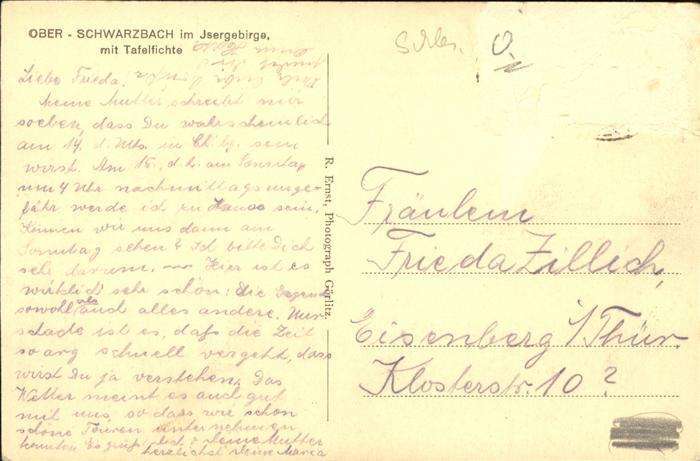 OBER - SCHWARZBACH im Jsergebirge,
mit Tafelfichte
Schles.
Liebe Frieda,
Meine Mutter schreibt mir
soeben, dass Du wahrscheinlich
am 14. d. Mts. in sein
wirst. Am 15., d. h. am Sonntag
um 4 Uhr nachmittags unge-
fähr werde ich zu Hause sein.
Können wir uns dann am
Sonntag sehen? Ich bitte Dich
sehr darum. — Hier ist es
wirklich sehr schön: die Gegend
sowohl als auch alles andere. Nur
schade ist es, daß die Zeit
so arg schnell vergeht, dass
wirst Du ja verstehen. Das
Wetter meint es auch gut
mit uns, so dass wir schon
schöne Touren unternehmen
konnten. Es grüßt Dich & Deine Mutter
herzlichst Deine Maria
R. Ernst, Photograph Görlitz
Fräulein
Frieda Zillich,
Eisenberg i/Thür.
Klosterstr. 10?